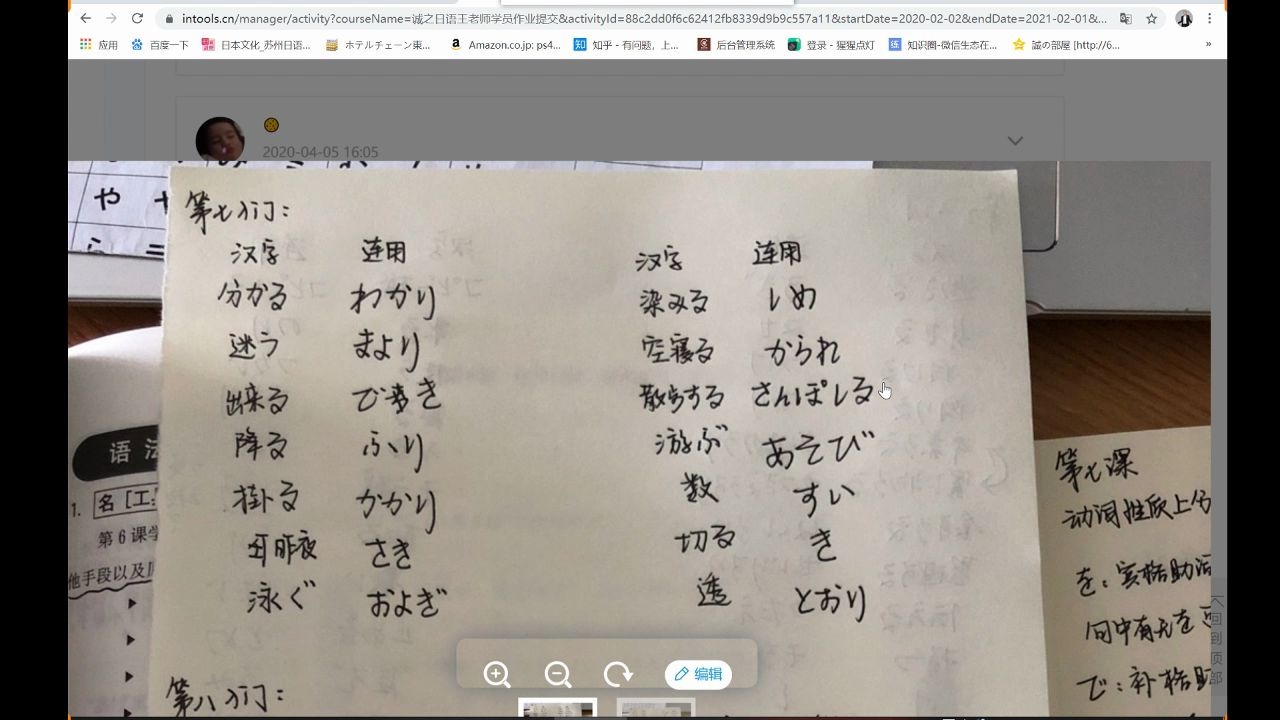 intools.cn/manager/activity?courseName=诚之日语王老师学员作业提交&activityId=88c2dd0f6c62412fb8339d9b9c557a11&startDate=2020-02-02&endDate=2021-02-01&...
应用 百度一下 日本文化_苏州日语... ホテルチェーン東... Amazon.co.jp: ps4... 知乎 - 有问题，上... 后台管理系统 登录 - 猩猩点灯 知识圈-微信生态在... 誠の部屋 [http://6... »
2020-04-05 16:05
や
第七入门：
汉字 连用
分かる わかり
迷う まより
出来る でき
降る ふり
掛る かかり
昨夜 さき
泳ぐ およぎ
汉字 连用
染みる しめ
空寝る かられ
散歩する さんぽしる
游ぶ あそび
数 すい
切る き
透 とおり
第八入门：
语 法
1. 名 [工
第 6 课学
他手段以及
第七课
动词性质上分
を：宾格助词
句中有无を
で：补格助
回到顶部
编辑